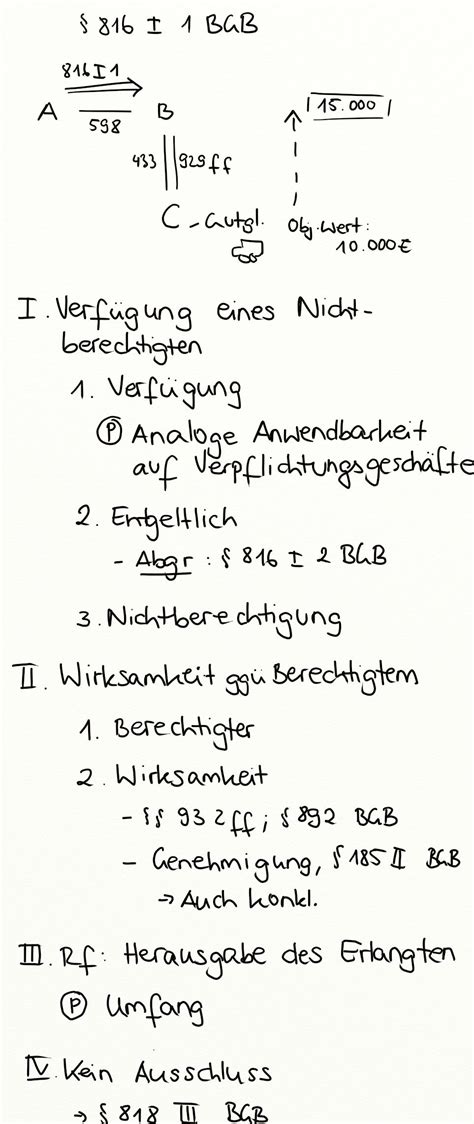 § 816 I 1 BGB
816 I 1
A
598
B
433
929ff
C - Gutgl.
15.000
Obj. Wert:
10.000€
I. Verfügung eines Nicht-
berechtigten
1. Verfügung
Ⓟ Analoge Anwendbarkeit
auf Verpflichtungsgeschäfte
2. Entgeltlich
- Abgr : § 816 I 2 BGB
3. Nichtberechtigung
II. Wirksamkeit ggü Berechtigtem
1. Berechtigter
2. Wirksamkeit
- §§ 932ff; § 892 BGB
- Genehmigung, § 185 II BGB
→ Auch konkl.
III. Rf: Herausgabe des Erlangten
Ⓟ Umfang
IV. Kein Ausschluss
→ § 818 III BGB